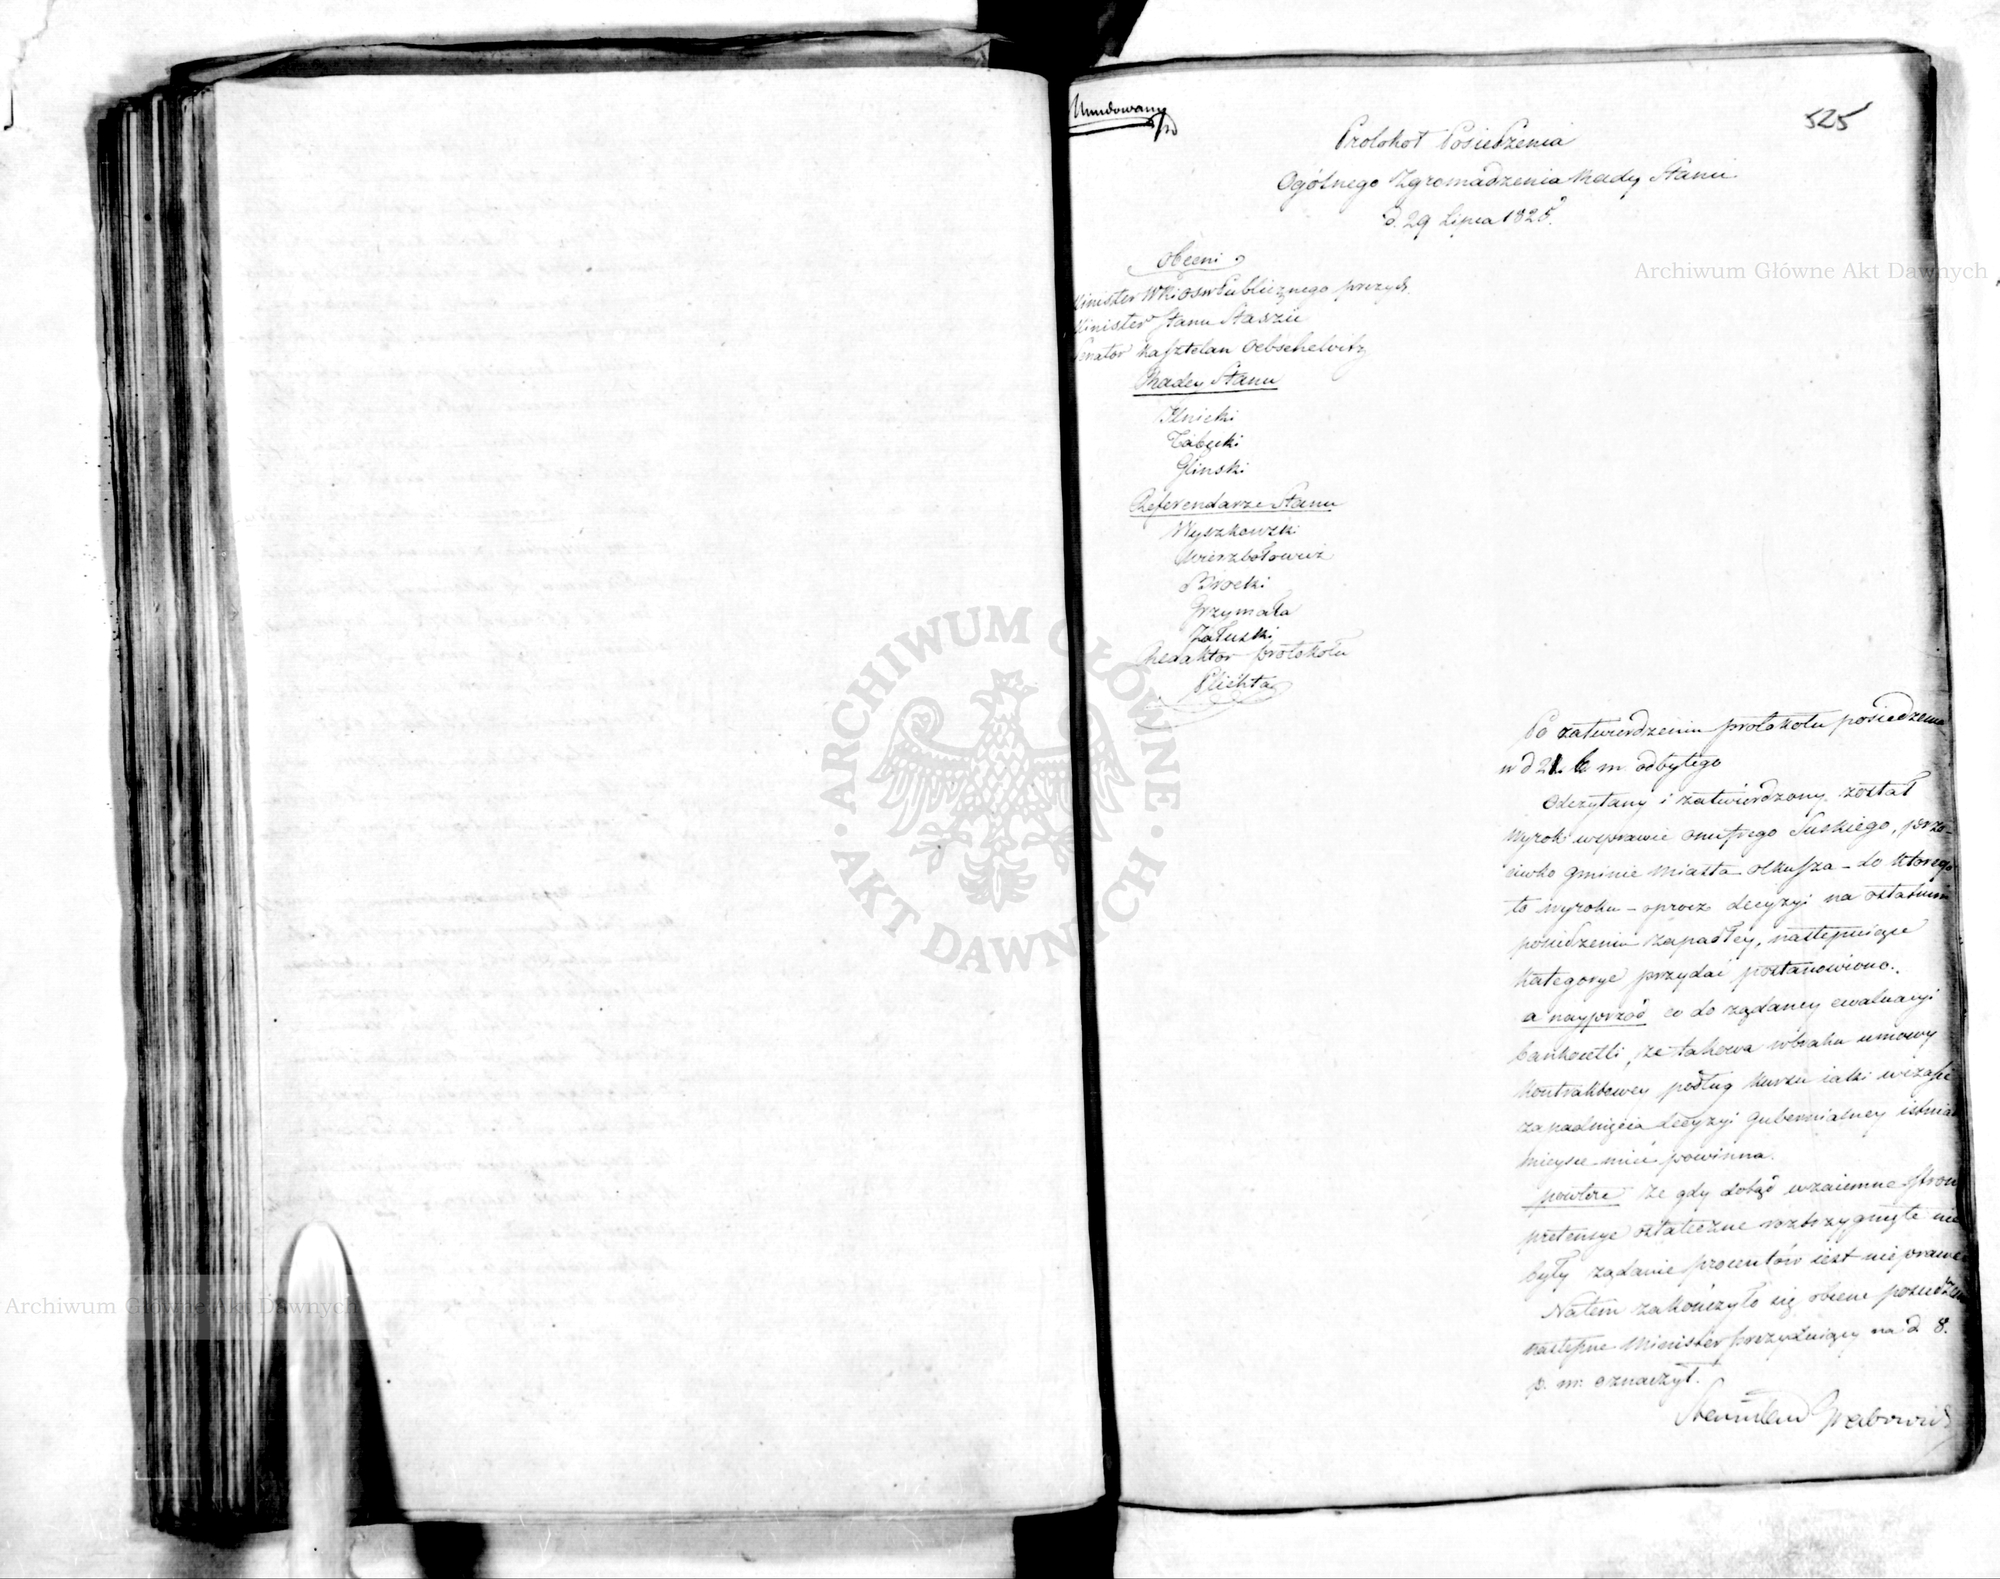 Mundowany
525
Protokół Posiedzenia
Ogólnego Zgromadzenia Rady Stanu
d. 29 Lipca 1825.
Obecni
Minister WRiOswPublicznego prezyd.
Minister Stanu Staszic
Senator Kasztelan Oebschelwitz
Radcy Stanu
Łabęcki
Glinski
Referendarze Stanu
Wyszkowski
Wierzbołowicz
Brocki
Grzymała
Załuski
Redaktor protokołu
Plichta
Po zatwierdzeniu protokołu posiedzenia
w d 21. b m. odbytego
Odczytany i zatwierdzony został
Wyrok wsprawie Onufrego Suskiego, prze-
ciwko gminie Miasta Olkusza – do którego
to wyroku – oprócz decyzyi na ostatnim
posiedzeniu zapadłey, następuiące
Kategorye przydać postanowiono.
a nayprzód co do żądaney ewaluacyi
bankocetli, że takowa wbraku umowy
kontraktowey podług kursu iaki wczasie
zapadnięcia decyzyi gubernialney istniał
mieysce mieć powinna.
powtóre że gdy dotąd wzaiemne stron
pretensye ostatecznie rozstrzygnięte nie
były żądanie procentów iest nieprawne
Natem zakończyło się obecne posiedzenie
następne Minister prezyduiący na d 8.
p. m. oznaczył.
Stanisław Grabowski
Archiwum Główne Akt Dawnych
Archiwum Główne Akt Dawnych
ARCHIWUM GŁÓWNE AKT DAWNYCH